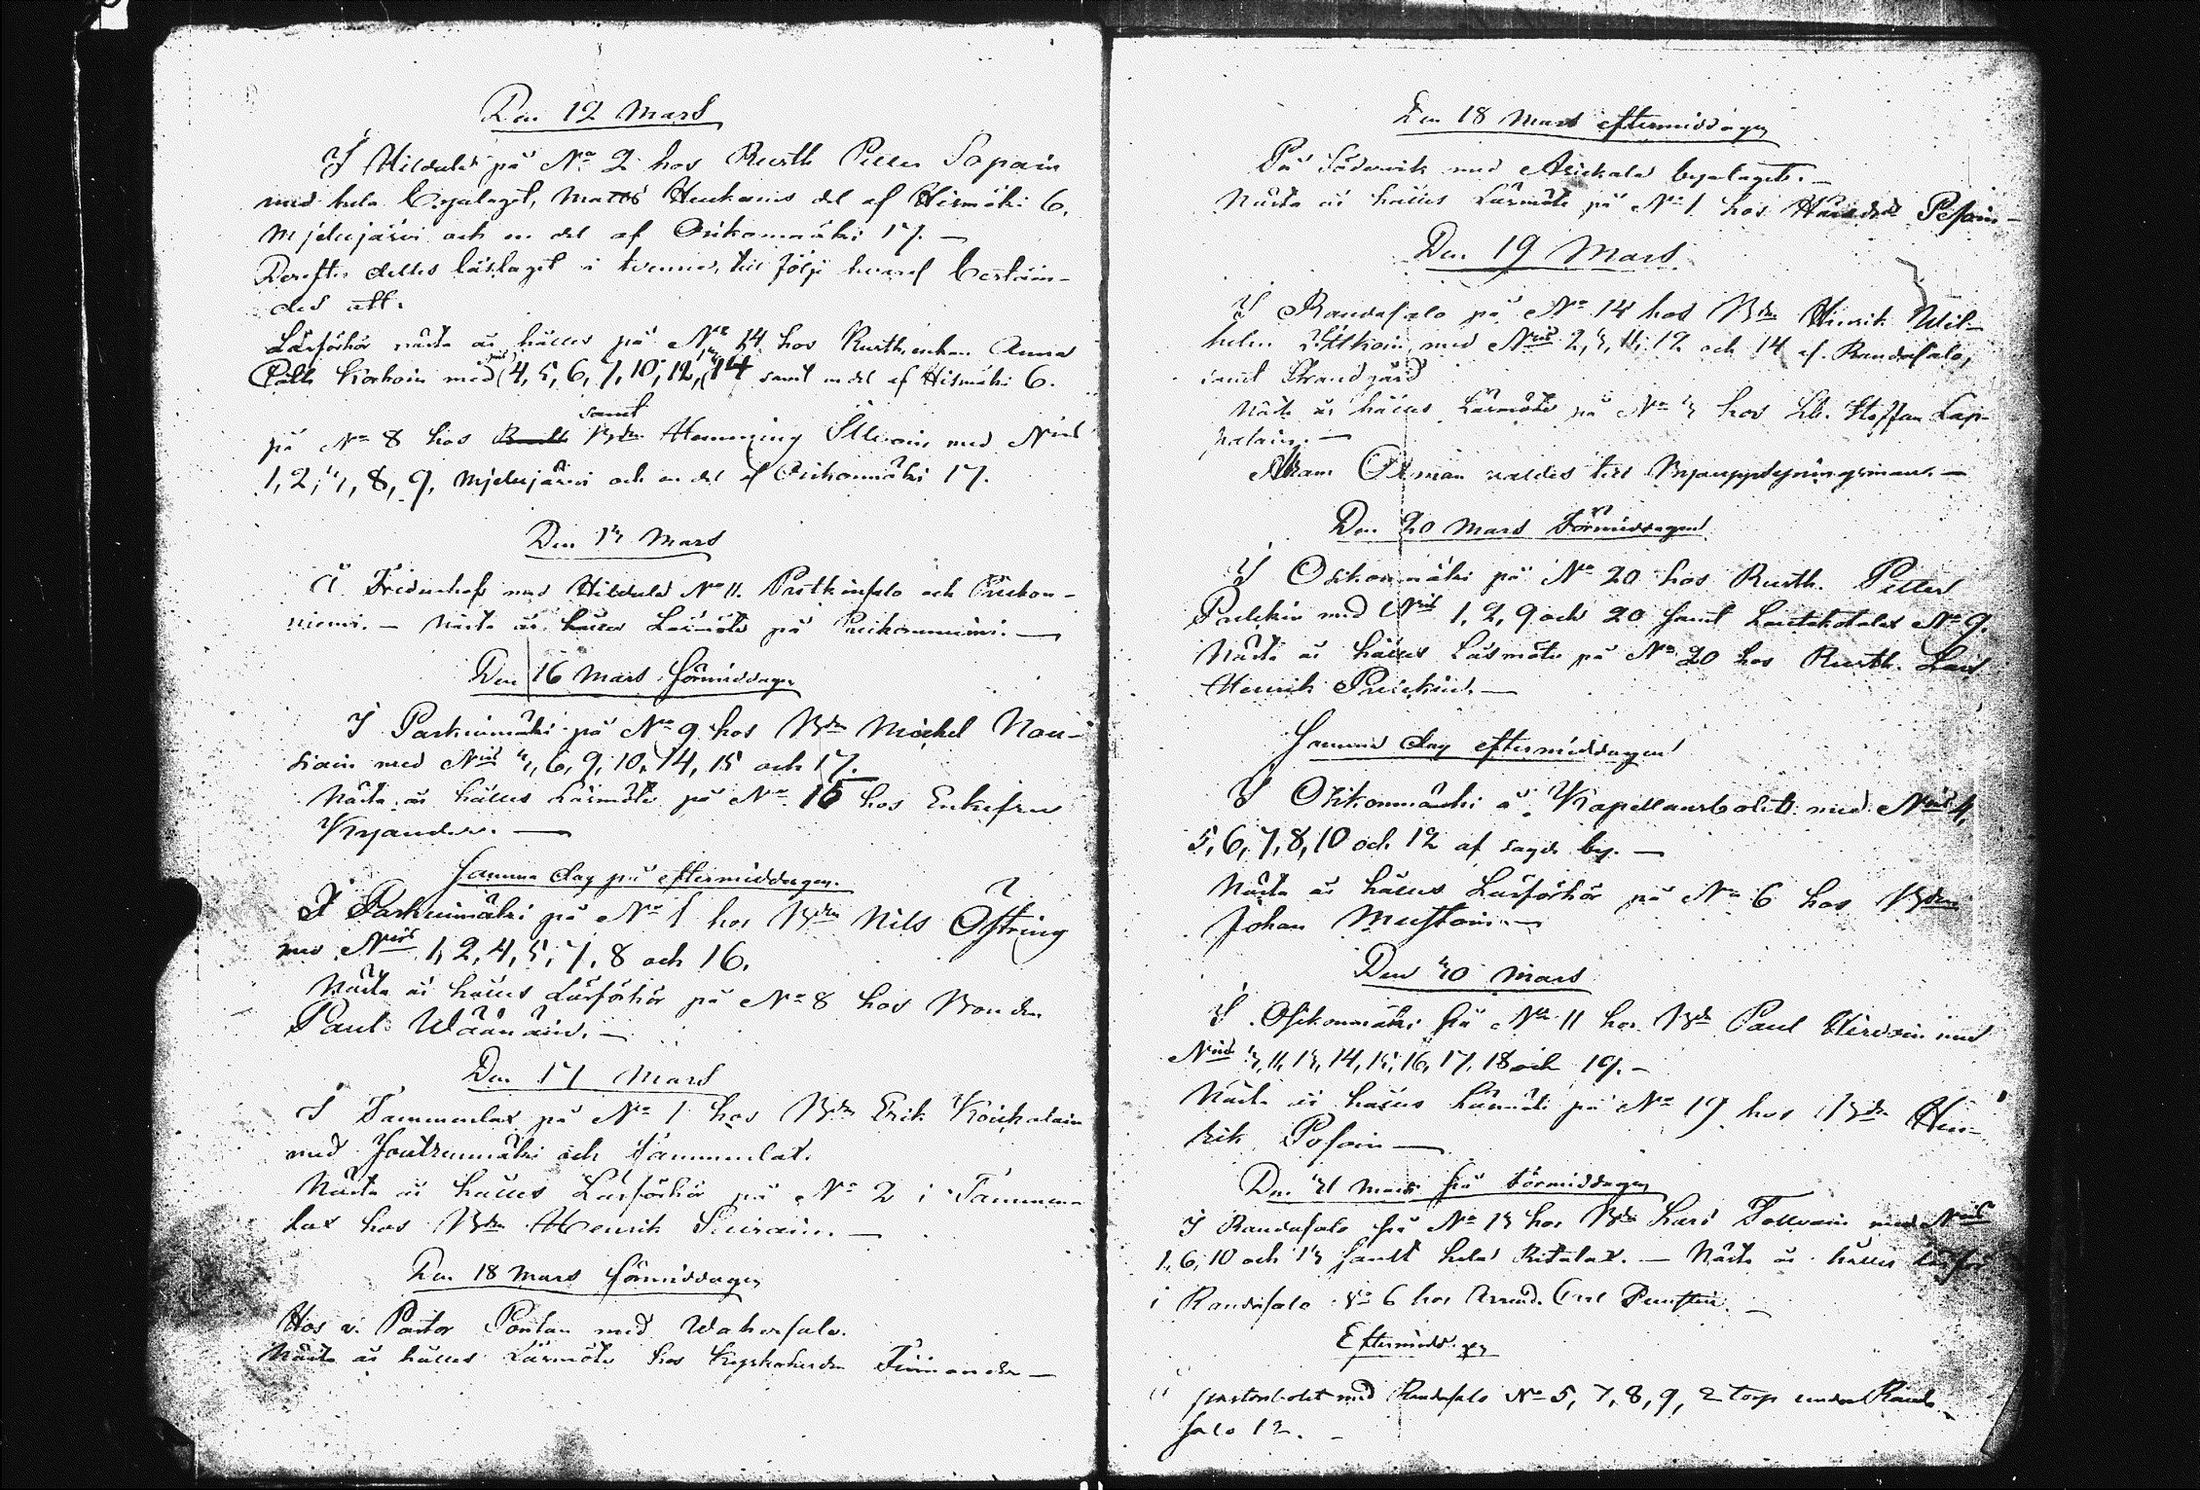 Den 12 Mars
I Hildula på No 2 hos Rusth Petter Sopain
med hela byalaget, Matts Huckains del af Hirmäki 6,
Mjelujärvi och en del af Orikonmäki 17. —
Derefter deltes läslaget i tvenne, till följe hvaraf bestäm-
des att.
Läsförhör nästa år hålles på No 14 hos Rusth.enkan Anna
med 4, 5, 6, 7, 10, 12, 14 samt en del af Hirmäki 6.
samt
på No 8 hos Bdn Hemming med Nris
1, 2, 3, 8, 9, Mjelujärvi och en del af Orikonmäki 17.
Den 13 Mars
Å Fredenhof med Hildula No 11. och
niemi. — Nästa år hålles Läsmöte på
Den 16 Mars förmiddagen
I Parkuinmäki på No 9 hos Bdn Michel Nou-
siain med Nris 3, 6, 9, 10, 14, 15 och 17.
Nästa år hålles Läsmöte på No 15 hos Enkefru
Kyander. —
Samma dag på eftermiddagen.
I Parkuimäki på No 1 hos Bdn Nils Ostring
med Nris 1, 2, 4, 5, 7, 8 och 16.
Nästa år hålles Läsförhör på No 8 hos Bonden
Paul Wäänäin. —
Den 17 Mars
I Tammenlax på No 1 hos Bdn Erik Koikalain
med Joutzenmäki och Tammenlax.
Nästa år hålles Läsförhör på No 2 i Tammen-
lax hos Bdn Henrik —
Den 18 Mars förmiddagen
Hos v. Pastor Pontan med Wahersalo.
Nästa år hålles Läsmöte hos Finnander —
Den 18 Mars eftermiddagen
På Södervik med byalaget. —
Nästa år hålles Läsmöte på No 1 hos Pesoin —
Den 19 Mars.
I Randasalo på No 14 hos Bdn Hinrik Wil-
helm med Nris 2, 3, 11, 12 och 14 af Randasalo,
samt Strandgård
Nästa år hålles Läsmöte på No 3 hos Lb. Staffan Lap-
palain. —
Adam valdes till Byauppsyningsman. —
Den 20 Mars Förmiddagen
I Osikonmäki på No 20 hos Rusth. Petter
Pulckin med Nris 1, 2, 9 och 20 samt Lautakotalax No 9.
Nästa år hålles Läsmöte på No 20 hos Rusth. Lars
Henrik —
Samma dag eftermiddagen
I Osikonmäki å Kapellansbolet med Nris 4,
5, 6, 7, 8, 10 och 12 af sagde by. —
Nästa år hålles Läsförhör på No 6 hos Bdn
Johan Mustoin. —
Den 30 Mars
I Osikonmäki på No 11 hos Bdn Paul med
Nris 3, 11, 13, 14, 15, 16, 17, 18 och 19. —
Nästa år hålles Läsmöte på No 19 hos Bdn Hen-
rik Posoin —
Den 31 Mars på förmiddagen
I Randasalo på No 13 hos Bdn Lars med Nris
1, 6, 10 och 13 samt hela Ritalax. — Nästa år hålles
i Randasalo No 6 hos Arrend. Carl —
Eftermidd.
å pastorsbolet med Randasalo No 5, 7, 8, 9, 2 torp under Randa-
salo 12. —